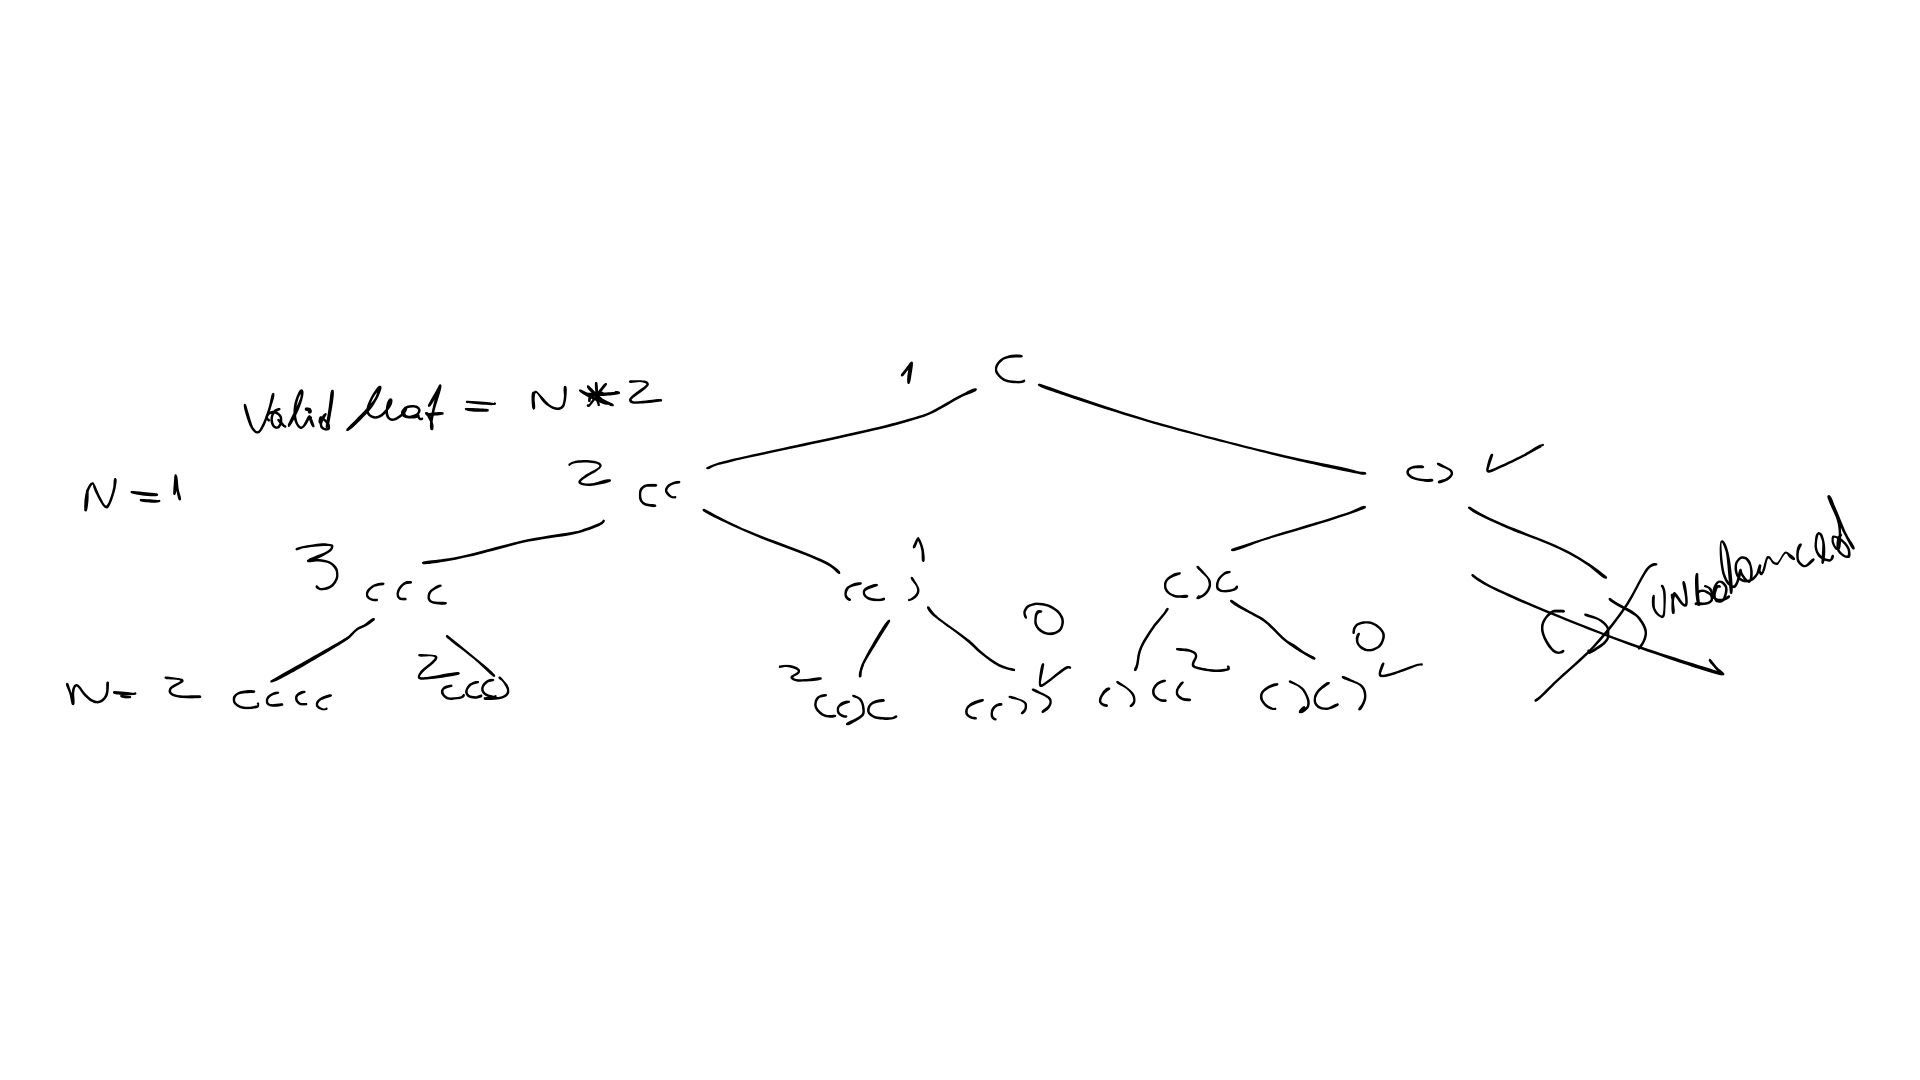 1 (
Valid leaf = N*2
2 ((
() ✓
N=1
3 (((
1 (()
()(
()) unbalanced
N=2 ((((
2 ((()
2 (()(
0 (()) ✓
()(( 2
0 ()() ✓